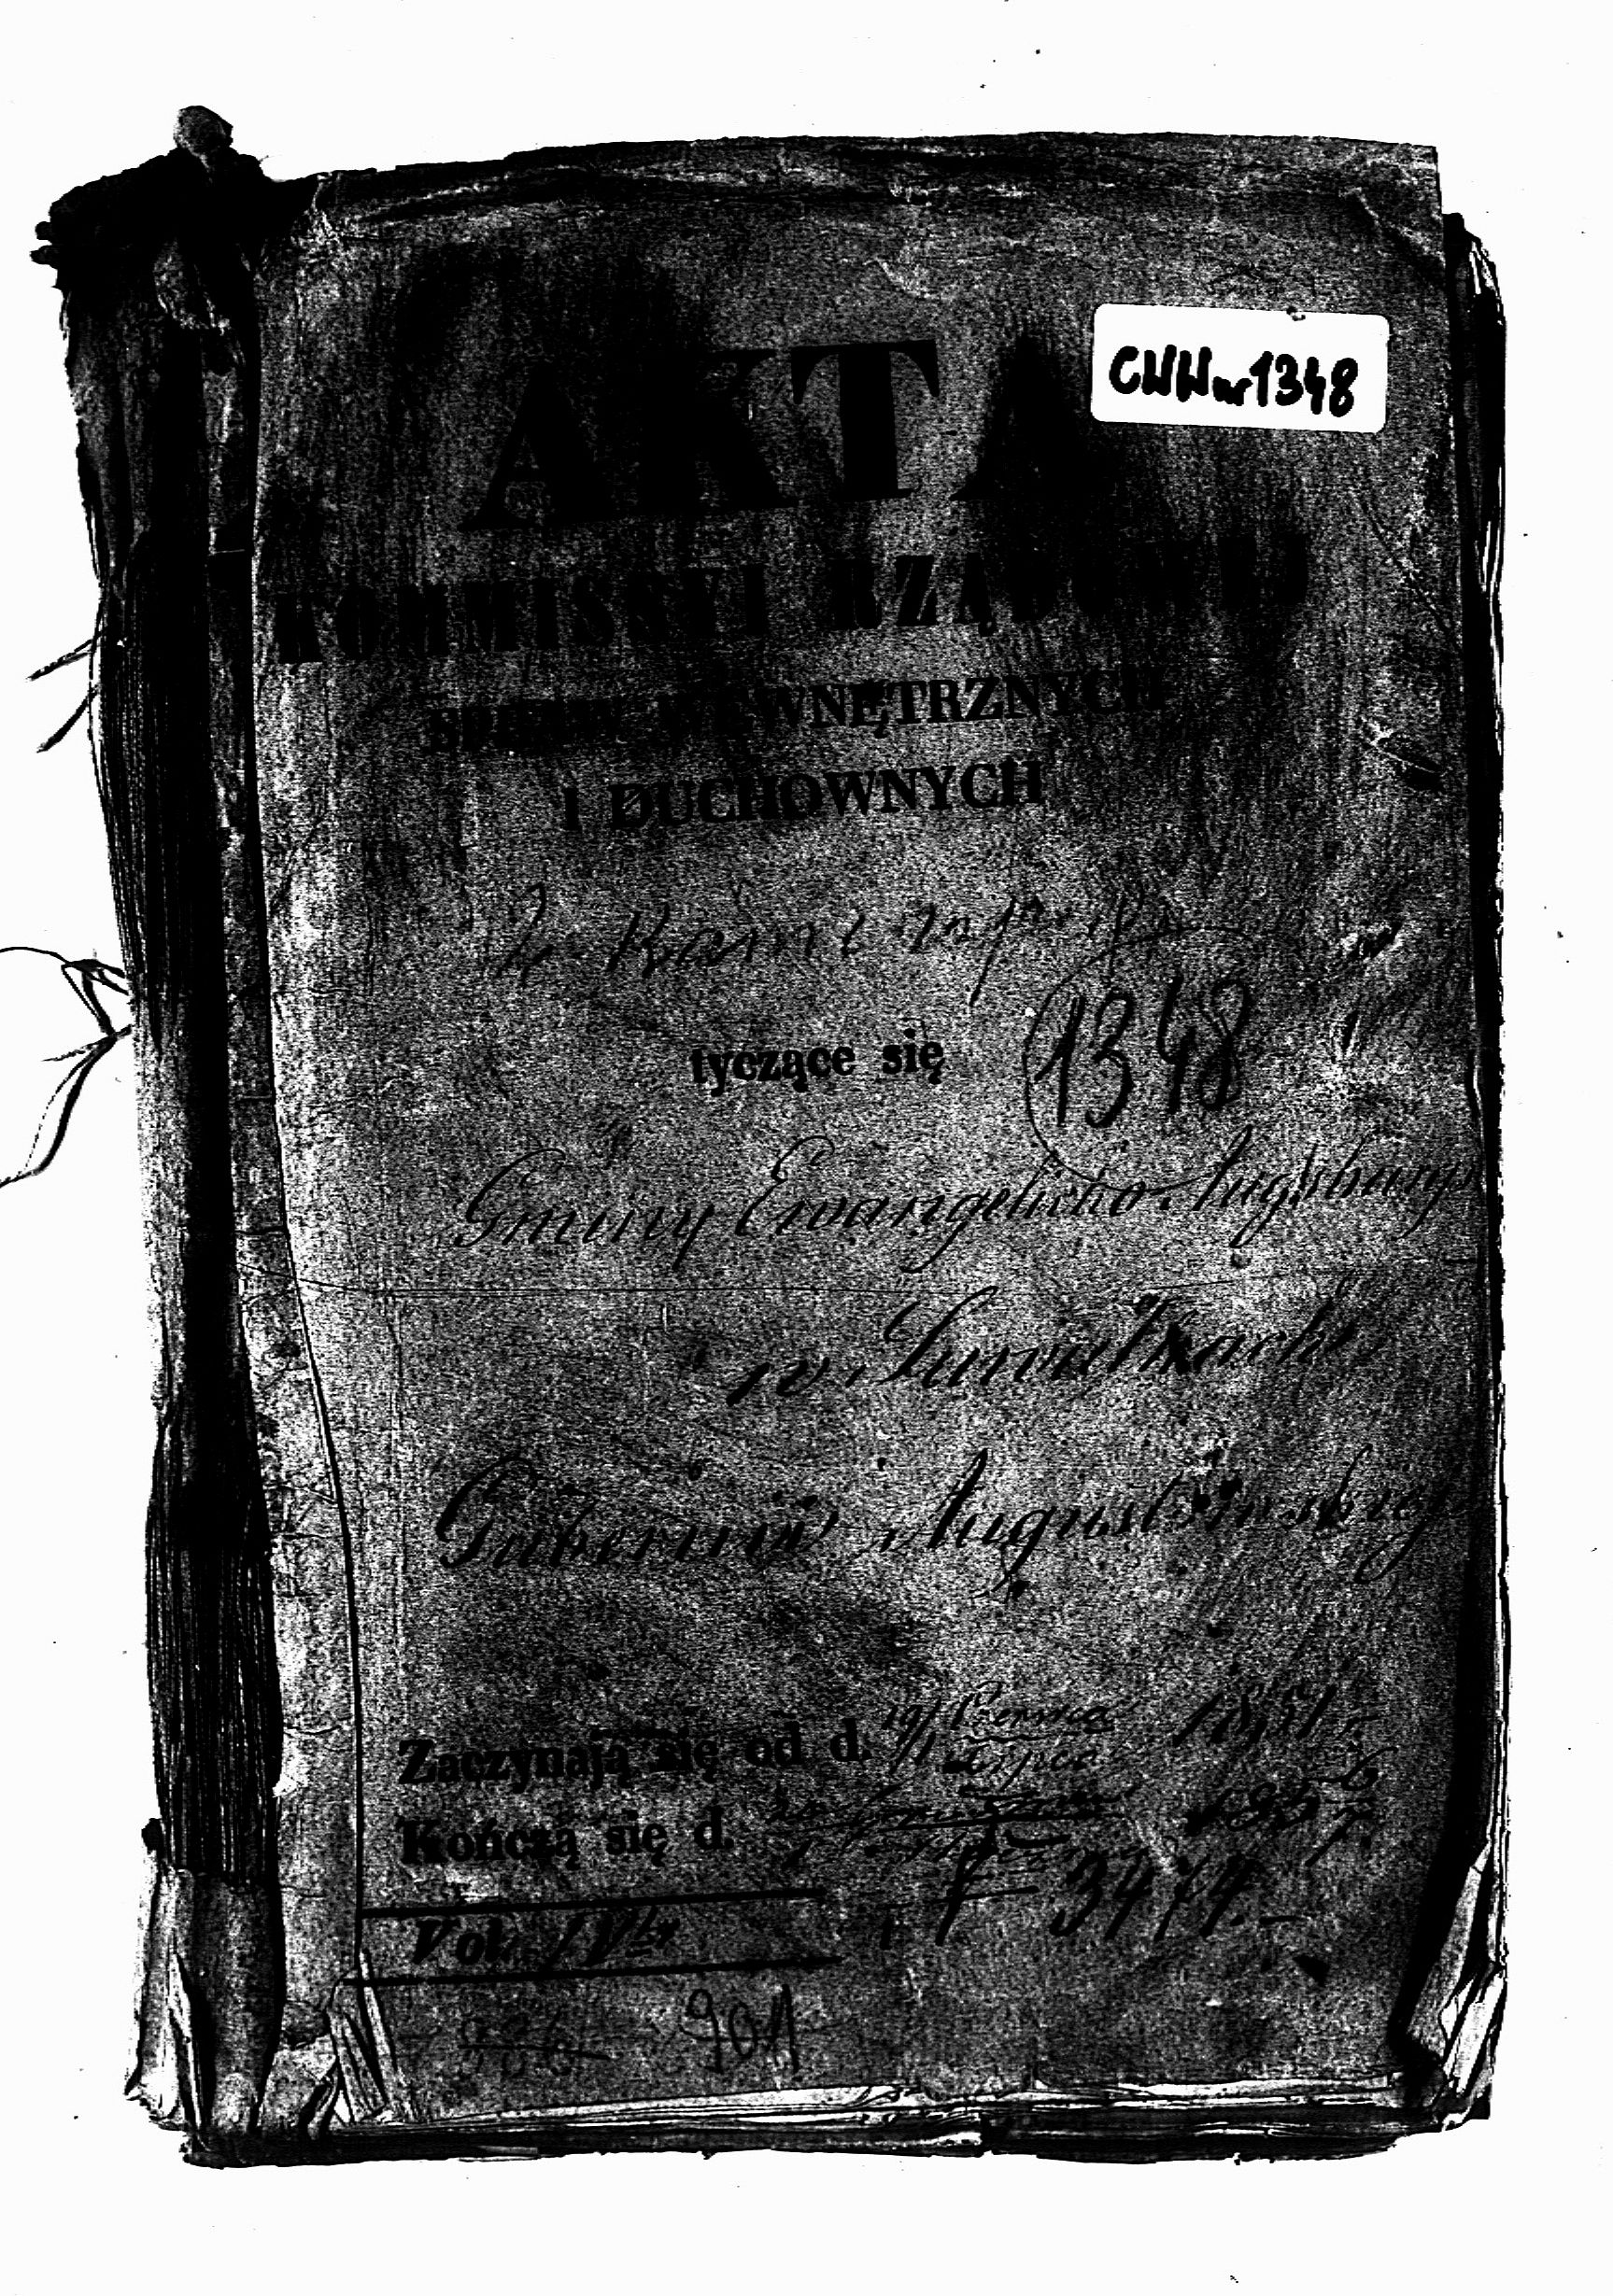 CWW nr 1348
AKTA
KOMMISSYI RZĄDOWEJ
SPRAW WEWNĘTRZNYCH
I DUCHOWNYCH
tyczące się
1348
Gminy Ewangelicko Augsburgs
w Suwałkach
Gubernii Augustowskiej
Zaczynają się od d. 19/1 Czerwca Lipca 1851 r.
Kończą się d. 1856 r.
Vol. IV
F 3474.
901